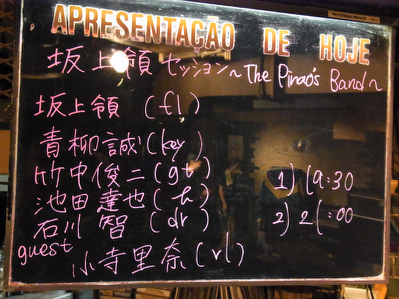 APRESENTAÇÃO DE HOJE
坂上領セッション〜The Pinao's Band〜
坂上領 (fl)
青柳誠 (key)
竹中俊二 (gt)
池田達也 (b)
石川智 (dr)
guest
小寺里奈 (vl)
1) 19:30
2) 21:00